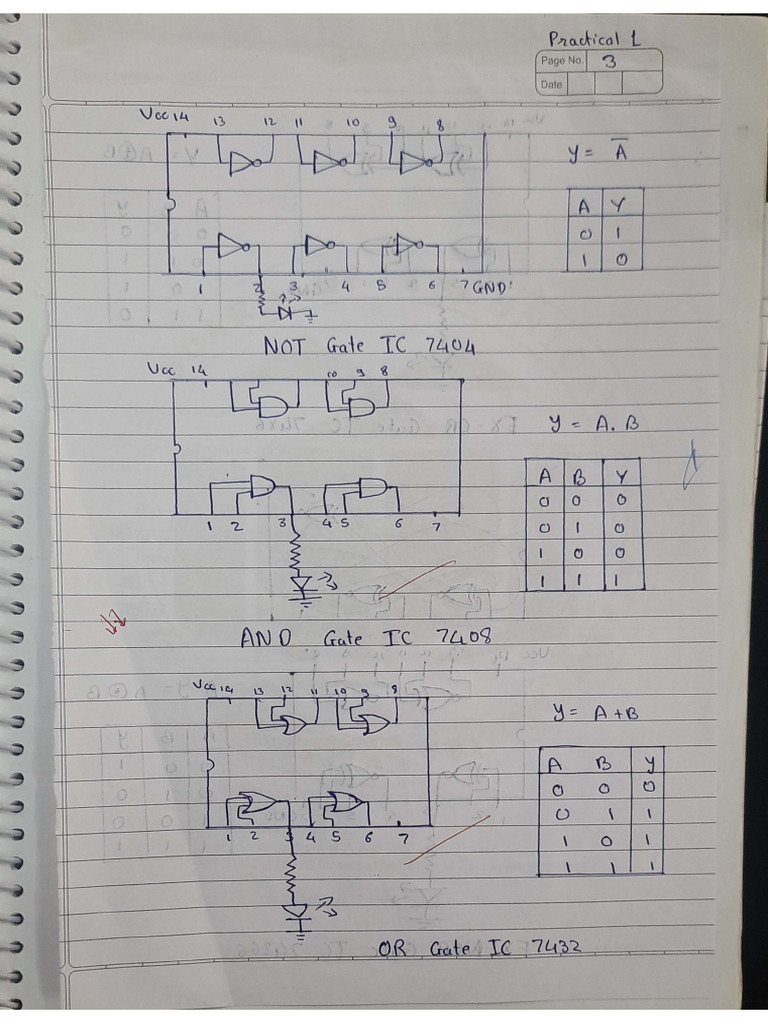 Practical 1
Page No. 3
Date
Vcc 14 13 12 11 10 9 8
Y = A̅
A Y
0 1
1 0
1 2 3 4 5 6 7 GND
NOT Gate IC 7404
Vcc 14 10 9 8
Y = A.B
A B Y
0 0 0
0 1 0
1 0 0
1 1 1
1 2 3 4 5 6 7
AND Gate IC 7408
Vcc 14 13 12 11 10 9 8
Y = A+B
A B Y
0 0 0
0 1 1
1 0 1
1 1 1
1 2 3 4 5 6 7
OR Gate IC 7432